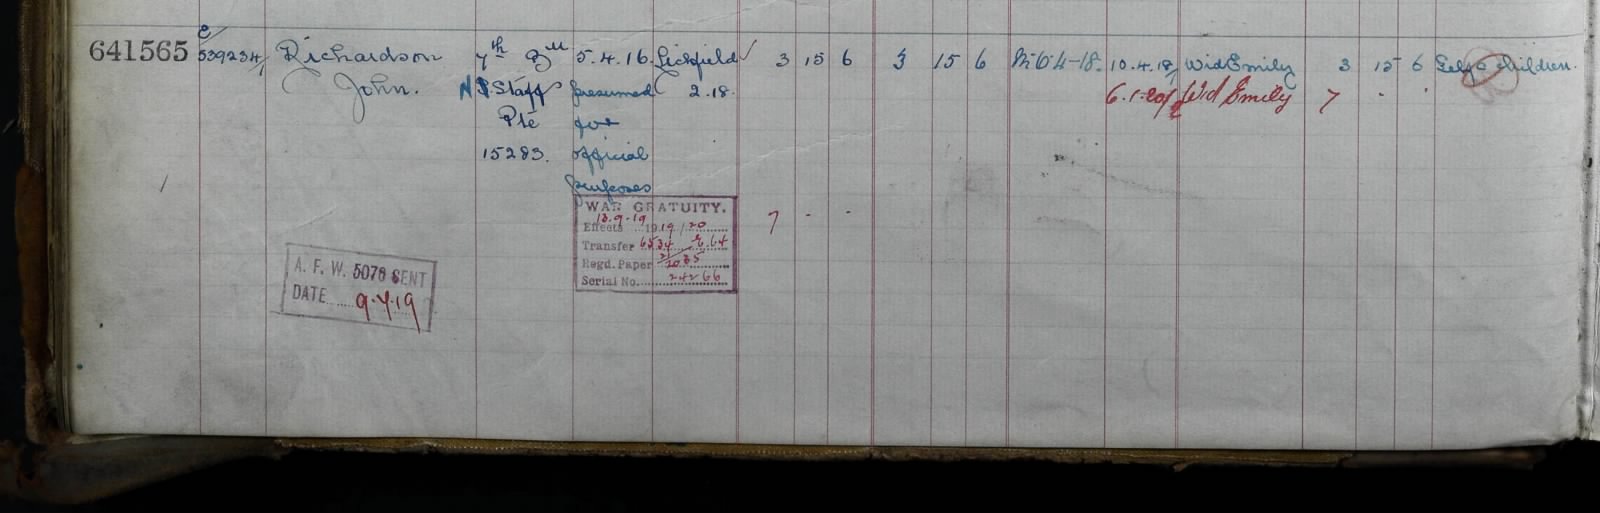 641565 E/539234/1 Richardson 7th Bn 5.4.16 Lichfield 3 15 6 3 15 6 6.4-18. 10.4.18 Wid Emily 3 15 6 Self & children.
John. N. Staff presumed 2.18. 6.1.20 Wid Emily 7 - -
Pte for
15283. official
purposes
WAR GRATUITY.
13.9.19
Effects 1919/20 7 - -
Transfer
Regd. Paper
Serial No.
A. F. W. 5076 SENT
DATE 9.7.19